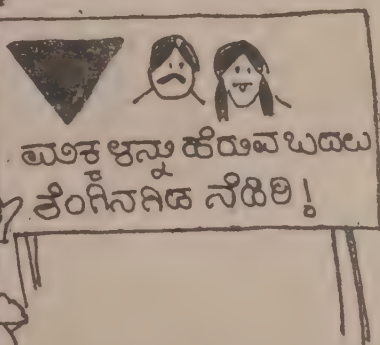 ಮಕ್ಕಳನ್ನು ಹೆರುವ ಬದಲು
ತೆಂಗಿನಗಿಡ ನೆಡಿರಿ!